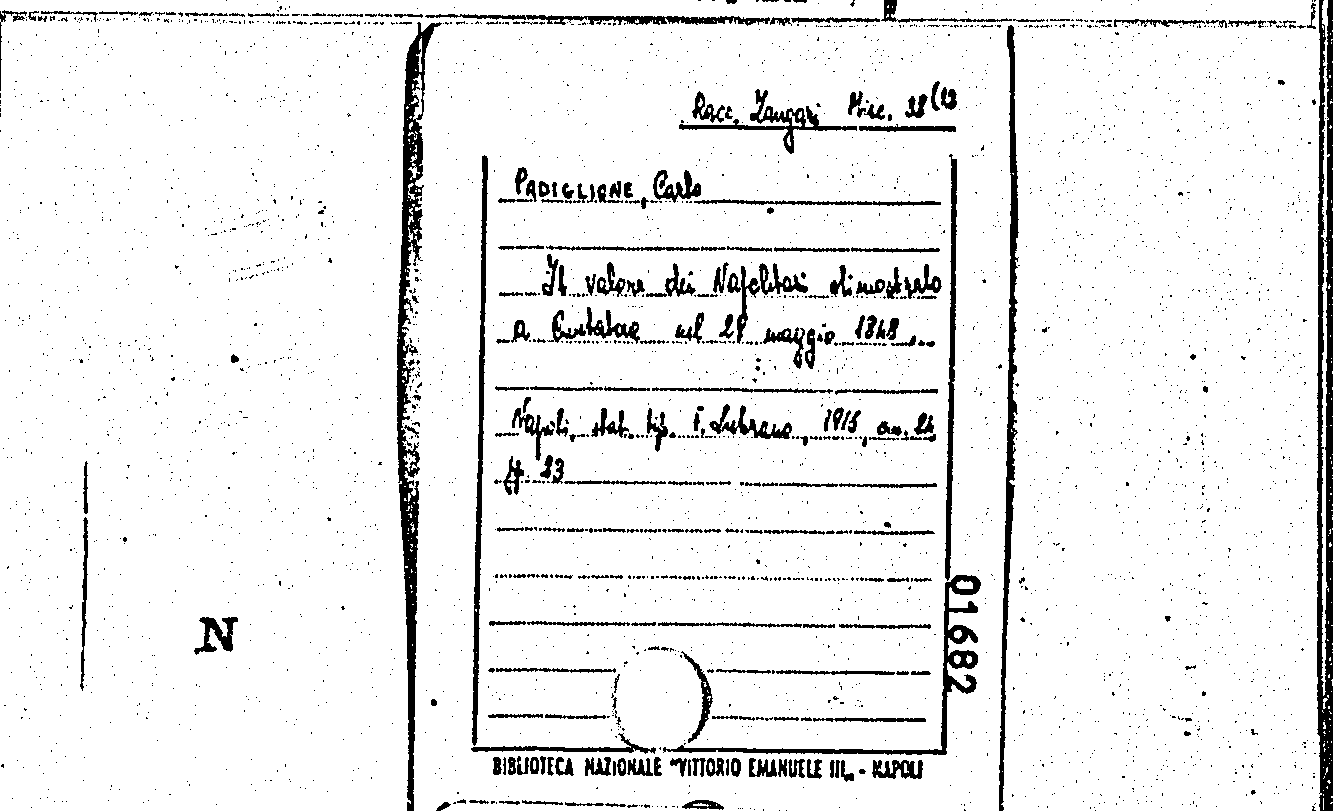 Racc. Zangari Misc. 38(13
PADIGLIONE, Carlo
Il valore dei Napoletani dimostrato
a Curtatone nel 29 maggio 1848...
Napoli, stab. tip. F. Lubrano, 1915, cm. 24
pp. 23
01682
N
BIBLIOTECA NAZIONALE "VITTORIO EMANUELE III„ - NAPOLI